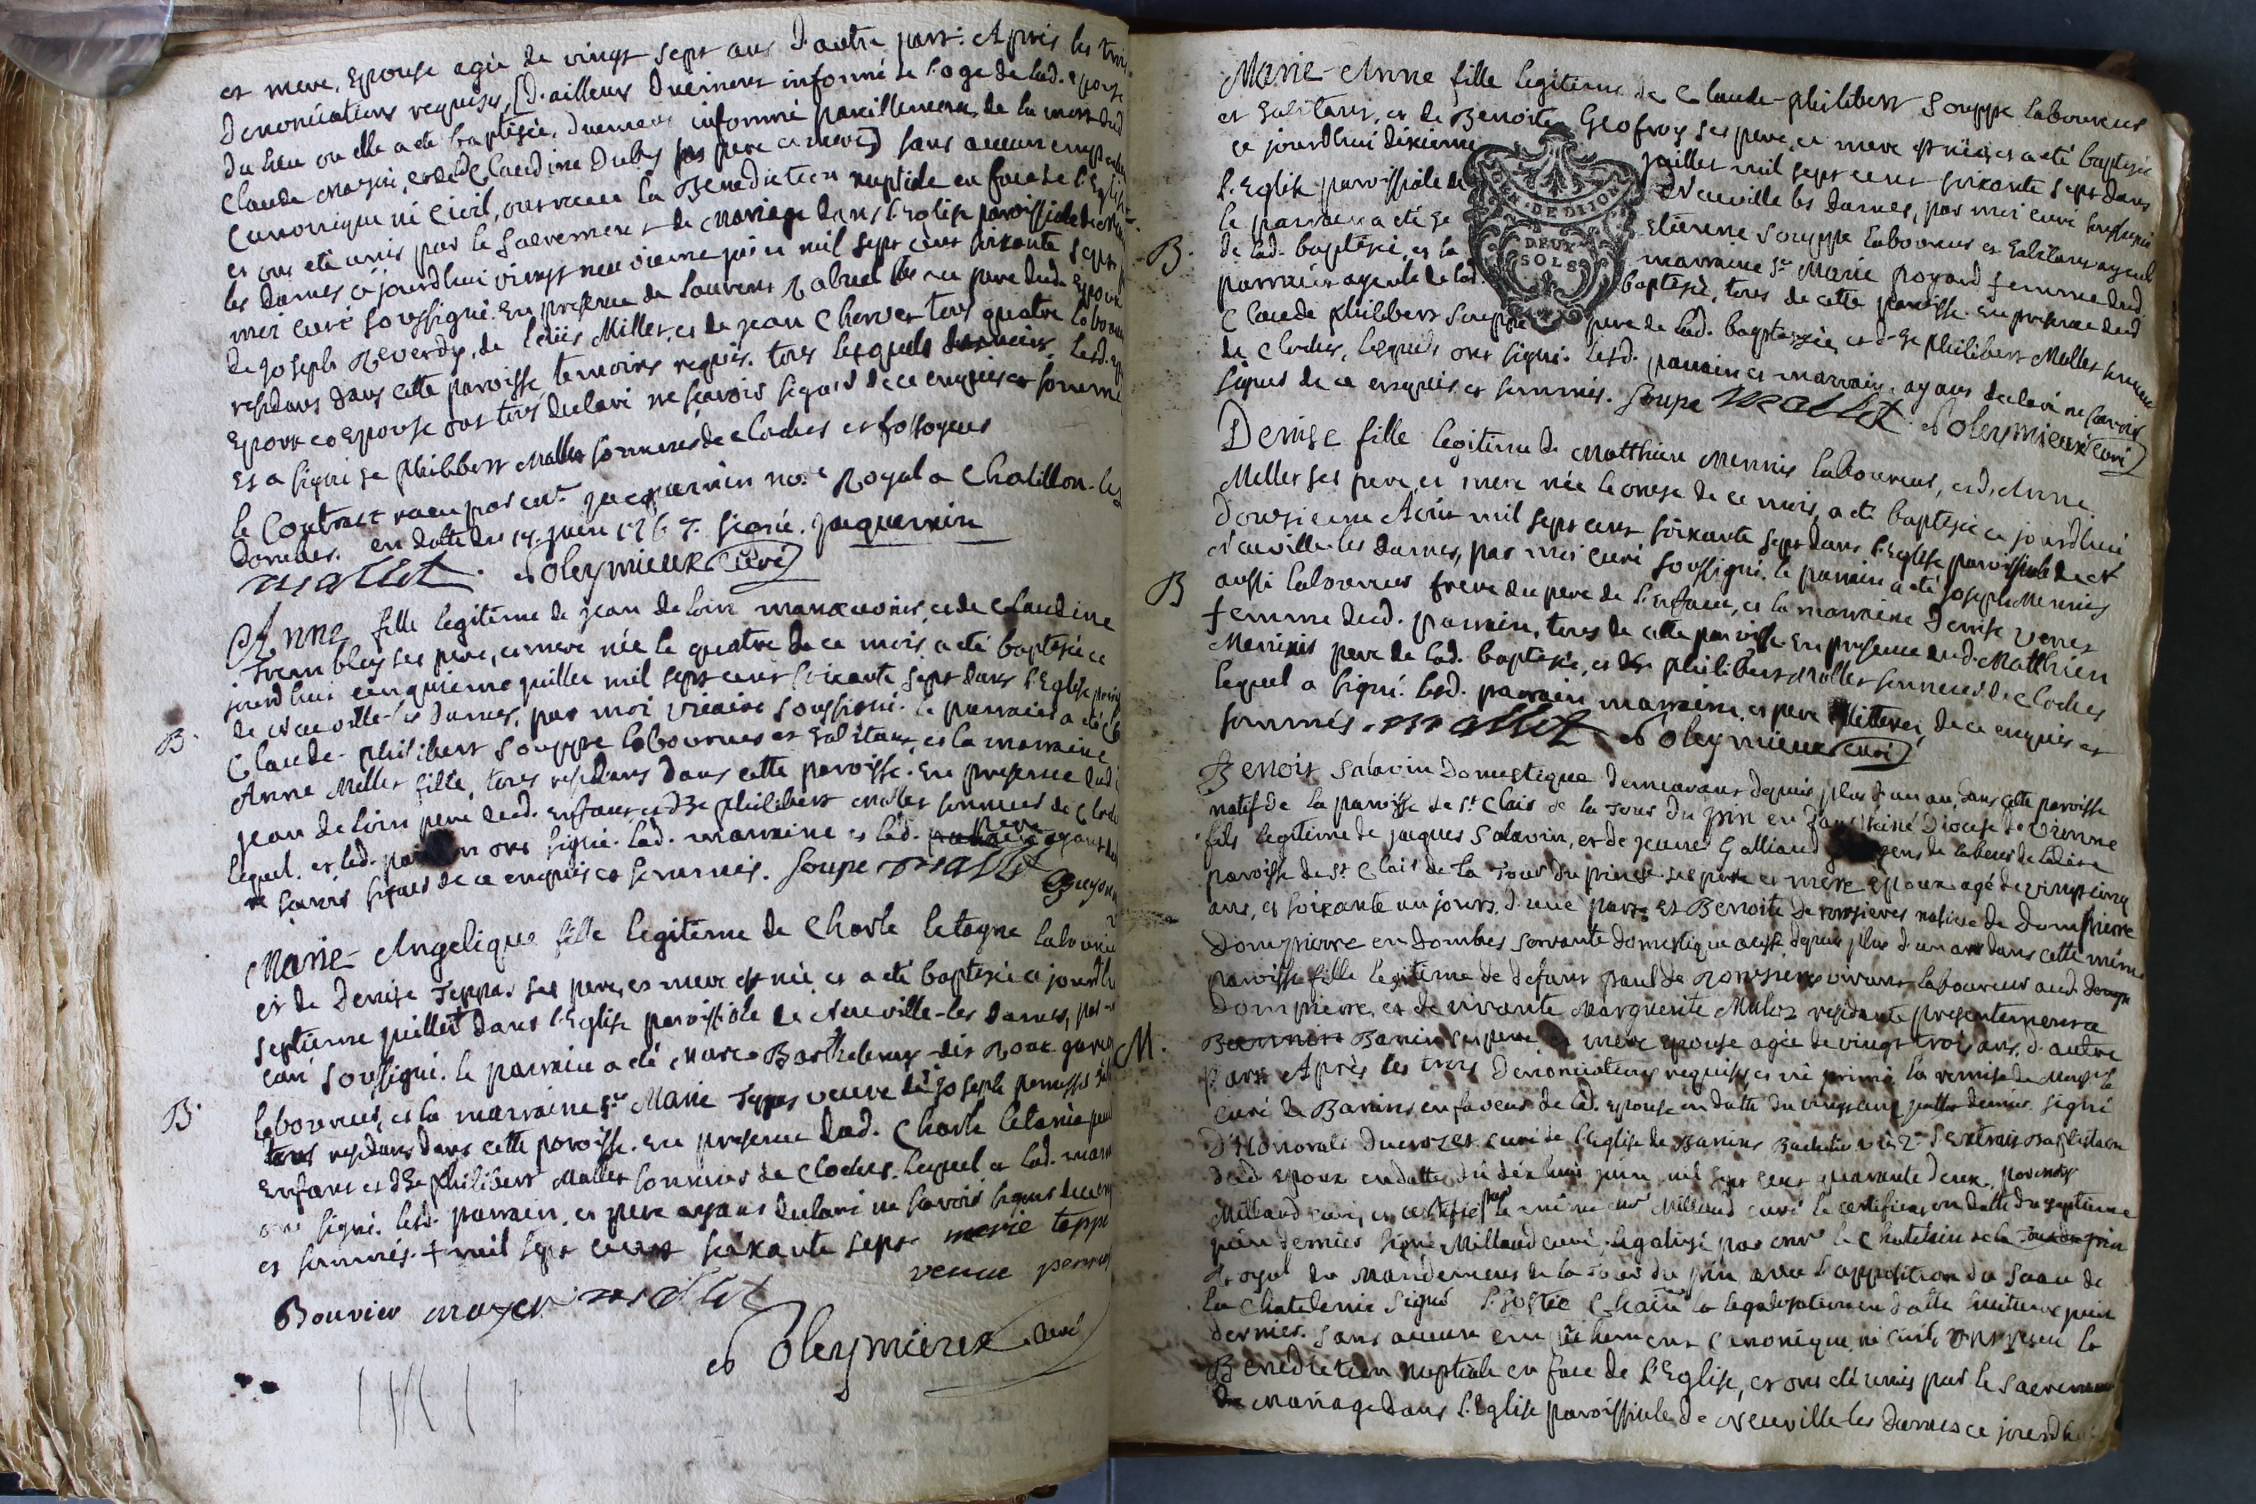 et mere, Epouse agée de vingt sept ans d'autre part. Après les trois
Denonciations requises, (D'ailleurs Duëment informé de l'age de lad. epouse
du lieu ou elle a eté baptisée, duement informé pareillement de la mort dud
Claude et de Claudine Dubuy ses pere et mere) sans aucun
Canonique ni Civil, ont recu la Benediction nuptiale en face de l'Eglise
et ont eté unis par le Sacrement de Mariage dans l'Eglise paroissiale de
les Dames ce jourdhui vingt neuvieme juin mil sept cent soixante sept
moi curé soussigné. En presence de Laurent pere dud. Epoux
de Joseph Reverdy, de Loüis Millet, et de jean Chervet tous quatre
residans dans cette paroisse temoins requis. tous lesquels lesd.
Epoux et Epouse ont tous declaré ne sçavoir signer de ce enquis et sommé
Et a signé Se philibert Mallet sonneur de Cloches et fossoyeur
le Contract recu par mr. jacquemin nore. Royal a Chatillon-les
Dombes. en datte du 14. juin 1767. signé. jacquemin
mallet. Poleymieux curé
Anne fille legitime de jean deloin manoeuvre, et de Claudine
Trembley ses pere, et mere née le quatre de ce mois, a eté baptisée ce
jourd'hui cinquieme juillet mil sept cent soixante sept dans l'Eglise
de Neuville-les Dames, par moi vicaire soussigné. le parrain a eté
B.
Claude-philibert Souppe laboureur et habitant, et la marraine
Anne Millet fille, tous residans dans cette paroisse. En presence dud
jean deloin pere dud. Enfant, et de Se philibert Mallet sonneur de
lequel et led. ont signé. lad. marraine et led. pere ayant
sçavoir signer de ce enquis et sommés. Soupe mallet Guyon
Marie-Angelique fille legitime de Charle letagne
et de Denise Teppa. ses pere, et mere est née, et a eté baptisée ce
septieme juillet † dans l'Eglise paroissiale de Neuville-les Dames, par
curé soussigné. le parrain a eté Marc Barthelemy dit
B.
laboureur, et la marraine Sr. Marie Teppa veuve de joseph
tous residans dans cette paroisse. En presence dud. Charle
Enfant et de Se philibert Mallet sonneur de Cloches. lequel et lad.
ont signé. lesd. parrain, et pere ayans declaré ne sçavoir signer
et sommés. † mil sept cent soixante sept marie teppa
veuve
Bouvier mallet
Poleymieux curé
Marie-Anne fille legitime de Claude-philibert Souppe laboureur
et habitant, et de Benoite Geofroy ses pere, et mere est née, et a eté baptisée
ce jourd'hui dixieme juillet mil sept cent soixante sept dans
GEN. DE DIJON
DEUX
SOLS
l'Eglise paroissiale de Neuville les Dames, par moi curé soussigné
le parrain a eté Se Etienne Souppe laboureur et habitant ayeul
B.
de lad. baptisée, et la marraine Sr. Marie Poyard femme dud.
parrain ayeule de lad. baptisée, tous de cette paroisse. En presence dud
Claude philibert Souppe pere de lad. baptisée, et de Se philibert Mallet sonneur
de Cloches, lesquels ont signé. lesd. parrain et marraine ayans declaré ne sçavoir
signer de ce enquis et sommés. Soupe Mallet Poleymieux curé
Denise fille legitime de Matthieu Mennis laboureur, et d'Anne
Millet ses pere, et mere née le onze de ce mois, a eté baptisée ce jourdhui
Douzieme Août mil sept cent soixante sept dans l'Eglise paroissiale de
Neuville-les Dames, par moi curé soussigné. le parrain a eté joseph Mennis
B
aussi laboureur frere du pere de l'enfant, et la marraine Denise
femme dud. parrain, tous de cette paroisse. En presence dud. Matthieu
Mennis pere de lad. baptisée, et de Se philibert Mallet sonneur de Cloches
lequel a signé. lesd. parrain, marraine, et pere illiteré, de ce enquis et
sommés. mallet Poleymieux curé
Benoit Salavin Domestique demeurant depuis plus d'un an, dans cette paroisse
natif de la paroisse de St. Clair de la Tour du pin en Dauphiné Diocese de Vienne
fils legitime de jacques Salavin, et de jeanne Galliard gens de labeur de ladite
paroisse de St Clair de la Tour du pin ses pere et mere epoux agé de vingt cinq
ans, et soixante un jours. d'une part. Et Benoite de ronzieres native de Dompierre
Dompierre en dombes servante domestique aussi depuis plus d'un an dans cette même
paroisse fille legitime de defunt paul de Ronziere vivant laboureur aud.
Dompierre, et de vivante Marguerite residente presentement a
M.
Banein ses pere et mere epouse agée de vingt trois ans, d'autre
part. Après les trois Denonciations requises, la remise de
curé de Banins en faveur de lad. epouse en datte du vingt cinq juillet dernier. signé
D'Honoral Ducrozet curé de l'Eglise de Banins l'extrait Baptistaire
dud. epoux en datte du dix huit juin mil sept cent quarante deux,
Millaud curé, et certifié par le même mr Millaud curé le certificat en datte du septieme
juin dernier signé Millaud curé. legalisé par mr le Chatelain de la
Royal du Mandement de la Tour du pin avec l'apposition du Sceau de
la Chatelenie signé la legalisation en datte huitieme juin
dernier. sans aucun empêchement Canonique, ni Civil, ont reçu la
Benediction nuptiale en face de l'Eglise, et ont eté unis par le Sacrement
de Mariage dans l'Eglise paroissiale de Neuville les Dames ce jourd'hui